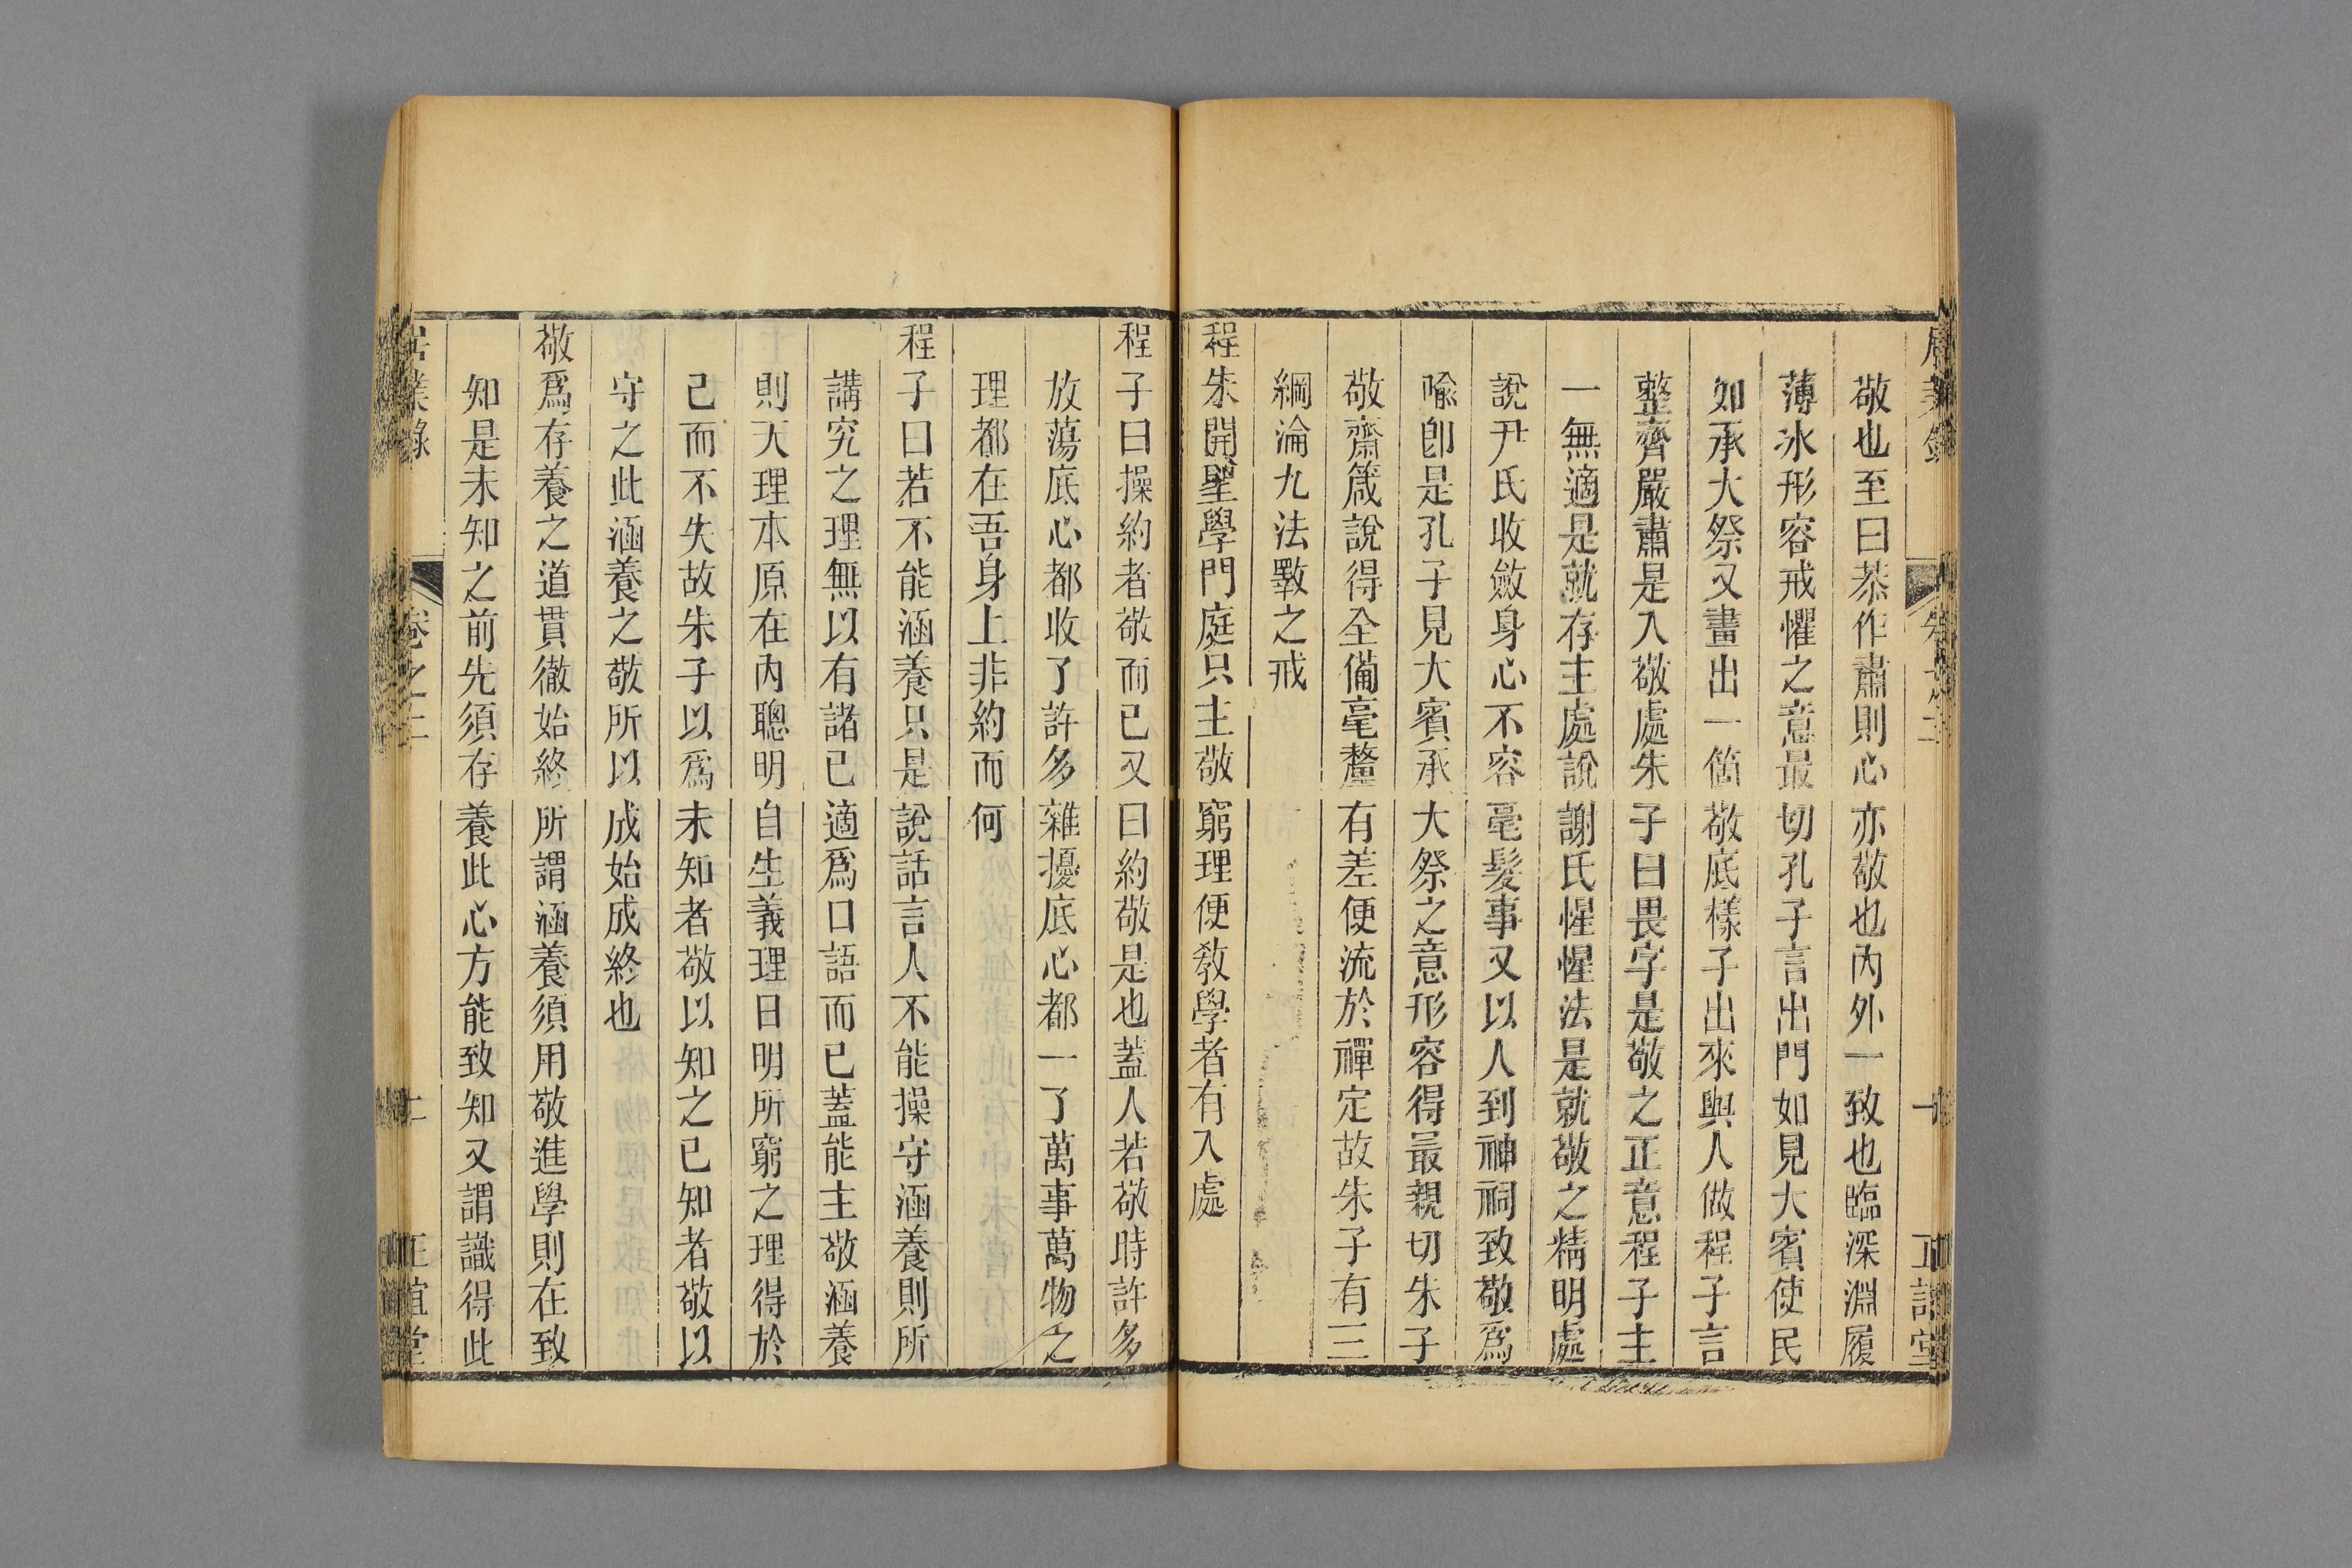 敬也至曰恭作肅則心亦敬也內外一致也臨深淵履
薄冰形容戒懼之意最切孔子言出門如見大賓使民
如承大祭又畫出一箇敬底樣子出來與人做程子言
整齊嚴肅是入敬處朱子曰畏字是敬之正意程子主
一無適是就存主處說謝氏惺惺法是就敬之精明處
說尹氏收斂身心不容毫髮事又以人到神祠致敬爲
喩卽是孔子見大賓承大祭之意形容得最親切朱子
敬齋箴說得全備毫釐有差便流於禪定故朱子有三
綱淪九法斁之戒
程朱開聖學門庭只主敬窮理便敎學者有入處
程子曰操約者敬而已又曰約敬是也蓋人若敬時許多
放蕩底心都收了許多雜擾底心都一了萬事萬物之
理都在吾身上非約而何
程子曰若不能涵養只是說話言人不能操守涵養則所
講究之理無以有諸己適爲口語而已蓋能主敬涵養
則天理本原在內聰明自生義理日明所窮之理得於
己而不失故朱子以爲未知者敬以知之已知者敬以
守之此涵養之敬所以成始成終也
敬爲存養之道貫徹始終所謂涵養須用敬進學則在致
知是未知之前先須存養此心方能致知又謂識得此
居業錄
卷之二
二
正誼堂